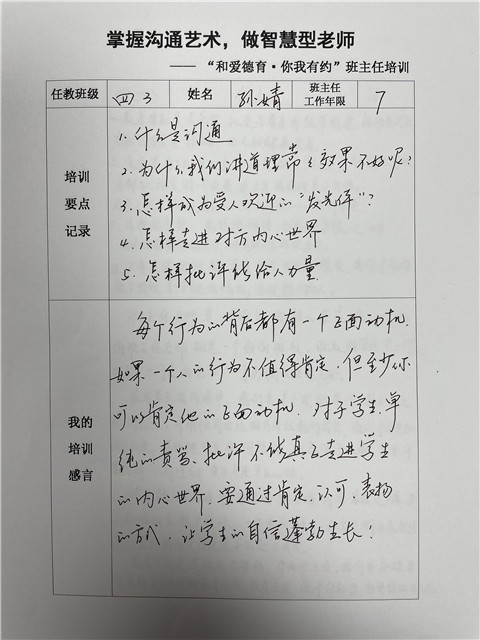 掌握沟通艺术，做智慧型老师
—— “和爱德育·你我有约”班主任培训
任教班级 四3 姓名 孙婧 班主任工作年限 7
培训要点记录
1. 什么是沟通
2. 为什么我们讲道理常常效果不好呢？
3. 怎样成为受人欢迎的“发光体”？
4. 怎样走进对方内心世界
5. 怎样批评能给人力量
我的培训感言
每个行为的背后都有一个正面动机.
如果一个人的行为不值得肯定，但至少你
可以肯定他的正面动机. 对于学生，单
纯的责骂、批评不能真正走进学生
的内心世界，要通过肯定、认可、表扬
的方式，让学生的自信蓬勃生长！